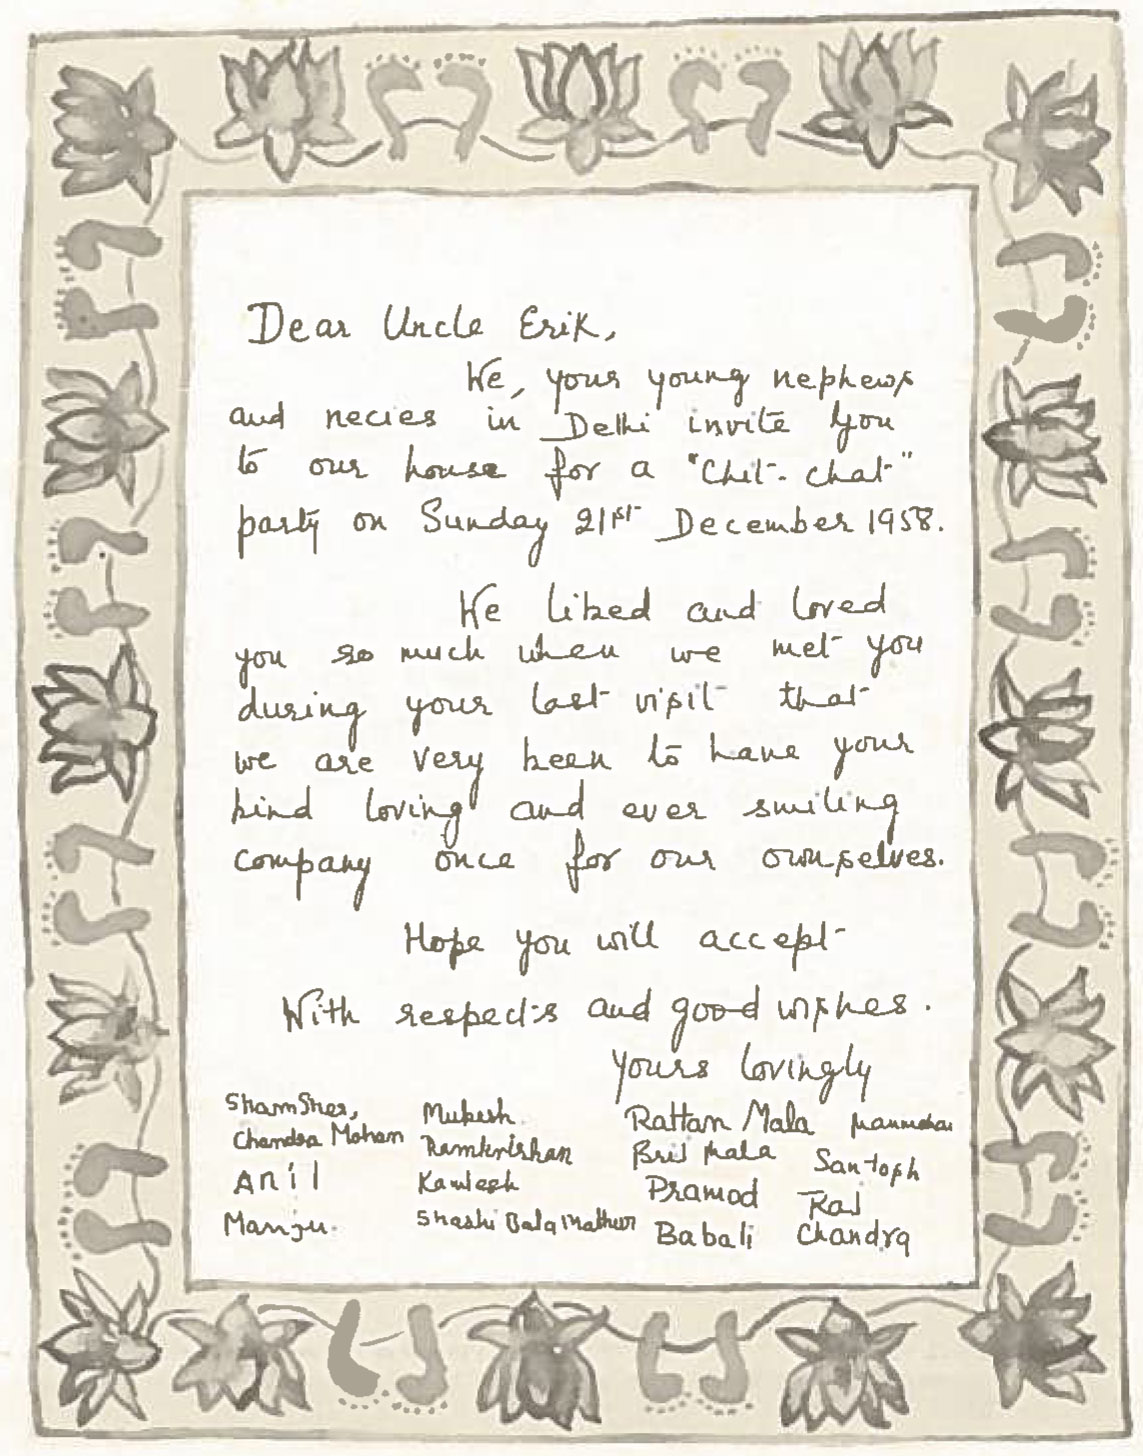 Dear Uncle Erik,
We, your young nephews
and necies in Delhi invite you
to our house for a "Chit-chat"
party on Sunday 21st December 1958.
We liked and loved
you so much when we met you
during your last visit that
we are very keen to have your
kind loving and ever smiling
company once for our ownselves.
Hope you will accept
With respects and good wishes.
Yours lovingly
Shamsher, Mukesh Rattan Mala Manmohan
Chandra Mohan Ramkrishan Brij Mala Santosh
Anil Kamlesh Pramod Raj
Manju. Shashi Bala Mathur Babali Chandra